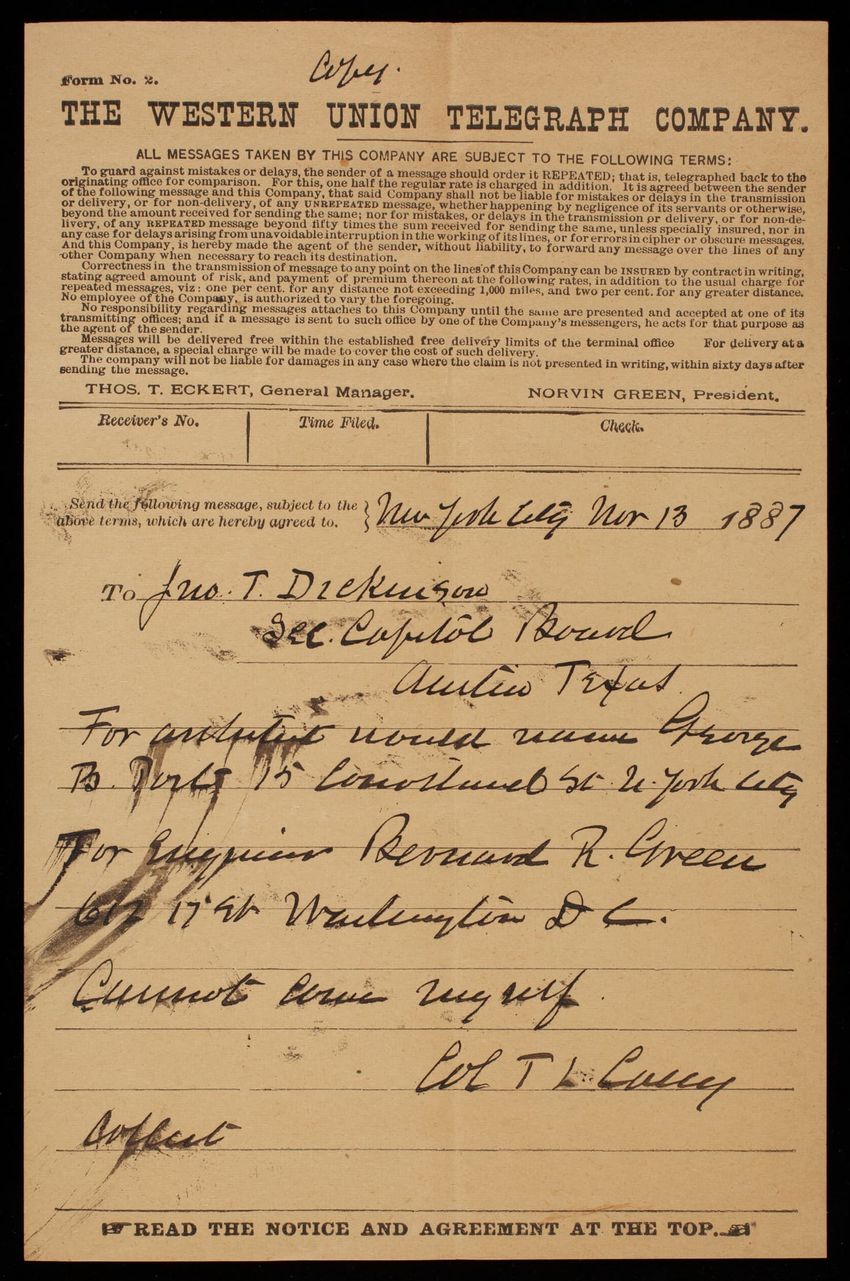 Copy.
Form No. 2.
THE WESTERN UNION TELEGRAPH COMPANY.
ALL MESSAGES TAKEN BY THIS COMPANY ARE SUBJECT TO THE FOLLOWING TERMS:
To guard against mistakes or delays, the sender of a message should order it REPEATED; that is, telegraphed back to the
originating office for comparison. For this, one half the regular rate is charged in addition. It is agreed between the sender
of the following message and this Company, that said Company shall not be liable for mistakes or delays in the transmission
or delivery, or for non-delivery, of any UNREPEATED message, whether happening by negligence of its servants or otherwise,
beyond the amount received for sending the same; nor for mistakes, or delays in the transmission or delivery, or for non-de-
livery, of any REPEATED message beyond fifty times the sum received for sending the same, unless specially insured, nor in
any case for delays arising from unavoidable interruption in the working of its lines, or for errors in cipher or obscure messages.
And this Company, is hereby made the agent of the sender, without liability, to forward any message over the lines of any
other Company when necessary to reach its destination.
Correctness in the transmission of message to any point on the lines of this Company can be INSURED by contract in writing,
stating agreed amount of risk, and payment of premium thereon at the following rates, in addition to the usual charge for
repeated messages, viz: one per cent. for any distance not exceeding 1,000 miles, and two per cent. for any greater distance.
No employee of the Company, is authorized to vary the foregoing.
No responsibility regarding messages attaches to this Company until the same are presented and accepted at one of its
transmitting offices; and if a message is sent to such office by one of the Company's messengers, he acts for that purpose as
the agent of the sender.
Messages will be delivered free within the established free delivery limits of the terminal office For delivery at a
greater distance, a special charge will be made to cover the cost of such delivery.
The company will not be liable for damages in any case where the claim is not presented in writing, within sixty days after
sending the message.
THOS. T. ECKERT, General Manager. NORVIN GREEN, President.
Receiver's No. Time Filed. Check.
Send the following message, subject to the
above terms, which are hereby agreed to. } New York City Nov 13 1887
To Jno. T. Dickinson
Sec. Capitol Board
Austin Texas.
For architect would name George
B. Post 15 Cortlandt St N. York City
For Engineer Bernard R. Green
17 St Washington D C.
Cannot come myself.
Col T L Casey
Collect
READ THE NOTICE AND AGREEMENT AT THE TOP.